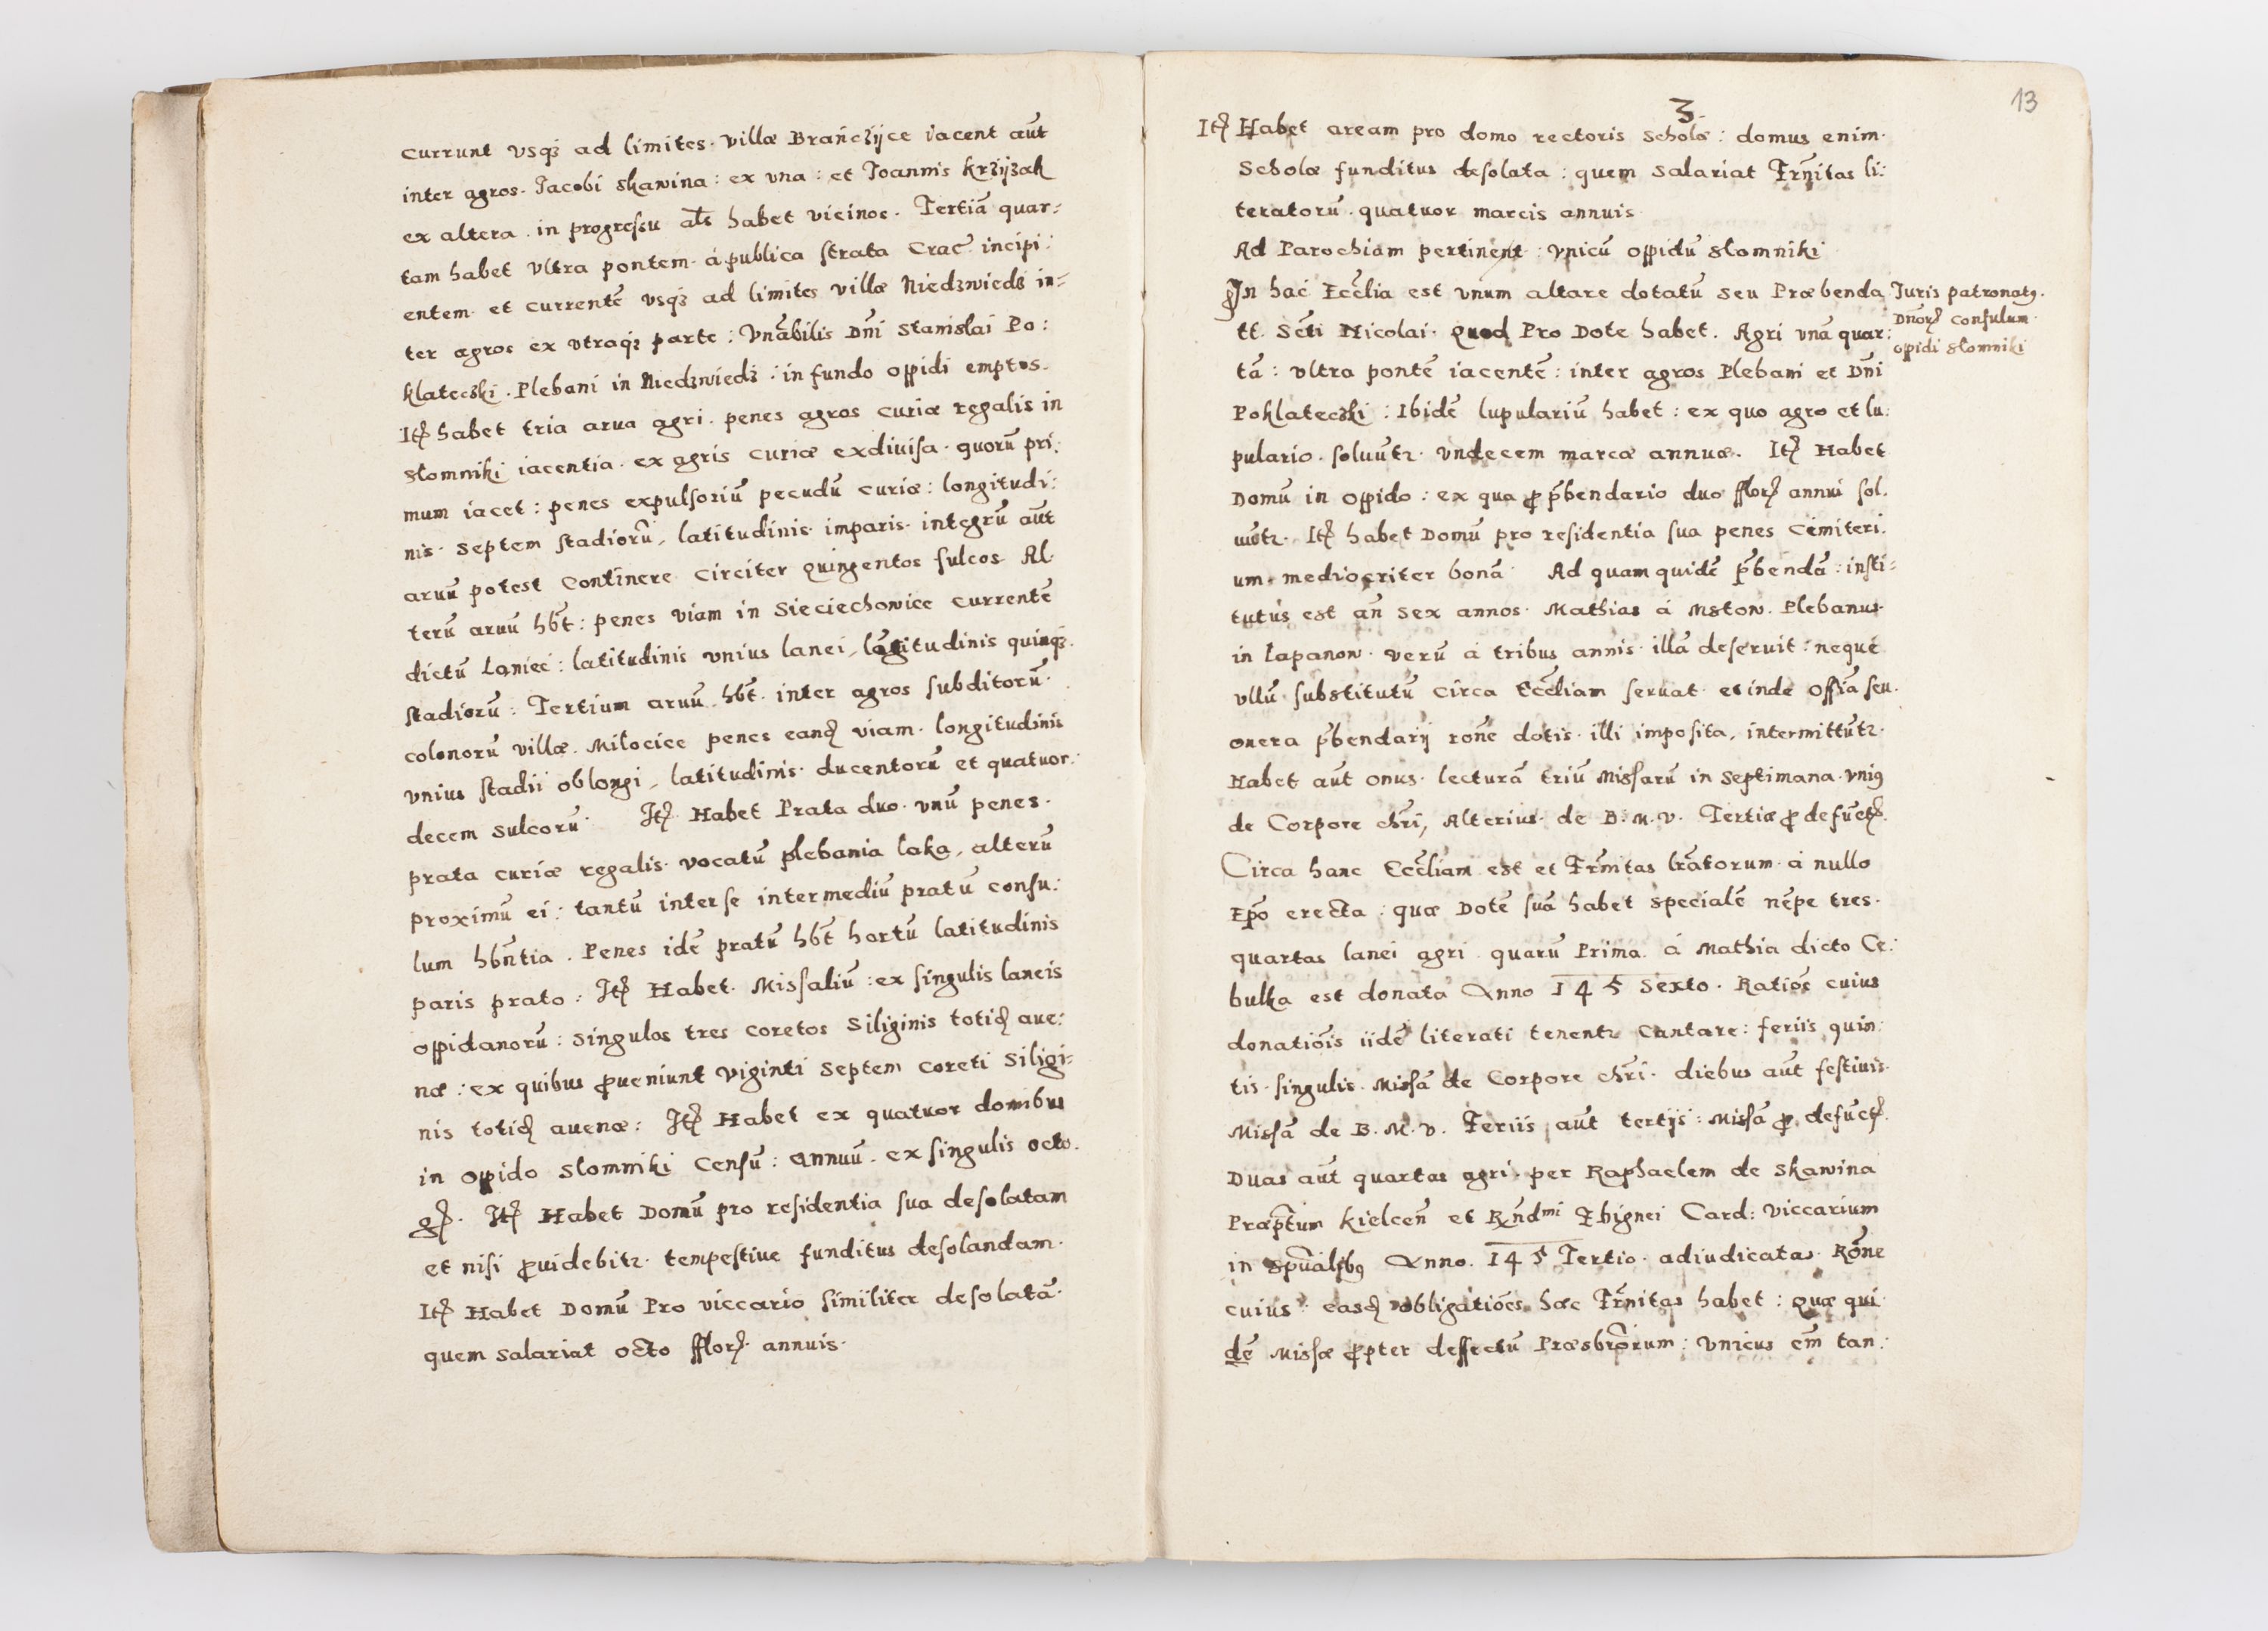 currunt vsqꝫ ad limites. villæ Brańcżijce iacent aūt
inter agros. Jacobi Skawina: ex vna: et Joannis krżijżak
ex altera. in progressu als habet vicinos. Tertiā quar=
tam habet vltra pontem. á publica strata Crac. incipi:
entem. et currentē vsqꝫ ad limites villæ Niedzwiedz in=
ter agros ex vtraqꝫ parte: Vnābilis Dn̄i Stanislai Po:
klateczki. Plebani in Niedzwiedz: in fundo oppidi emptos.
Itꝫ habet tria arua agri. penes agros curiæ regalis in
Słomniki iacentia. ex agris curiæ exdiuisa. quorū pri:
mum iacet: penes expulsoriū pecudū curiæ: longitudi:
nis. Septem stadiorū, latitudinis. imparis. integrū aūt
aruū potest continere circiter quingentos sulcos. Al.
terū aruū hb̄t: penes viam in Sieciechowice currentē
dictū Laniec: latitudinis vnius lanei, lōgitudinis quinqꝫ.
stadiorū: Tertium aruū. hb̄t. inter agros subditorū.
colonorū villæ. Miłocice penes eandꝫ viam. longitudinis
vnius stadii oblongi, latitudinis. ducentorū et quatuor.
decem sulcorū. Itꝫ. Habet Prata duo. vnū penes.
prata curiæ regalis. vocatū plebania laka, alterū
proximū ei: tantū interse intermediū pratū consu:
lum hb̄ntia. Penes idē pratū hb̄t hortū latitudinis
paris prato: Itꝫ Habet. Missaliū: ex singulis laneis
oppidanorū: singulos tres coretos siliginis totidꝫ aue:
næ: ex quibus ꝓueniunt viginti septem coreti siligi=
nis totidꝫ auenæ: Itꝫ Habet ex quatuor domibus
in oppido Słomniki censū: annuū. ex singulis octo.
gꝫ. Itꝫ Habet Domū pro residentia sua desolatam
et nisi ꝓuidebitꝛ. tempestiue funditus desolandam.
Itꝫ Habet Domū Pro viccario similiter desolatā.
quem salariat octo fflorꝫ. annuis.
13
3
Itꝫ Habet aream pro domo rectoris scholæ: domus enim.
Scholæ funditus desolata: quem salariat Frn̄itas li:
teratorū. quatuor marcis annuis.
Ad Parochiam pertinent: vnicū oppidū Słomniki
In hac Eccl̄ia est vnum altare dotatū seu Præbenda
tt. Scti Nicolai. Quod Pro Dote habet. Agri vnā quar:
tā: vltra pontē iacentē: inter agros Plebani et Dn̄i
Poklateczki: Ibidē lupulariū habet: ex quo agro et lu.
pulario. soluūtꝛ. vndecem marcæ annuæ. Itꝫ Habet
Domū in oppido: ex qua ꝓ p̄bendario duo fflorꝫ annui sol.
uūtꝛ. Itꝫ habet Domū pro residentia sua penes Cimiteri.
um. mediocriter bonā. Ad quam quidē p̄bendā: insti=
tutus est an̄ sex annos. Mathias á Mstow. Plebanus.
in Łapanow. verū á tribus annis. illā deseruit: neque
vllū substitutū circa Eccl̄iam seruat. et inde offīa seu.
onera p̄bendarij ron̄e dotis. illi imposita, intermittūtꝛ.
Habet aūt onus. lecturā triū Missarū in septimana. vniꝰ
de Corpore chr̄i, Alterius. de B.M.V. Tertiæ ꝓ defūctꝫ.
Circa hanc Eccl̄iam est et Fr̄nitas Lr̄atorum. á nullo
Ep̄o erecta: quæ Dotē suā habet specialē nēpe tres.
quartas lanei agri. quarū Prima. á Mathia dicto Ce:
bulka est donata Anno 145 Sexto. Ratiōe cuius
donatiōis iidē literati tenentꝛ cantare: feriis quin:
tis. singulis. Missā de Corpore chr̄i. diebus aūt festiuis.
Missā de B.M.V. Feriis aūt tertijs: Missā ꝓ defūctꝫ.
Duas aūt quartas agri. per Raphaelem de Skawina
Præp̄tum Kielceñ et Rn̄dmi Sbignei Card: viccarium
in sp̄ualibꝰ Anno. 145 Tertio. adiudicatas. Rōne
cuius. easdꝫ obligatiōes hæc Fr̄nitas habet: Quæ qui
dē Missæ ꝓpter deffectū Præsbr̄orum: vnicus em̄ tan:
Juris patronatꝰ.
Dn̄orꝫ Consulum.
oppidi Słomniki